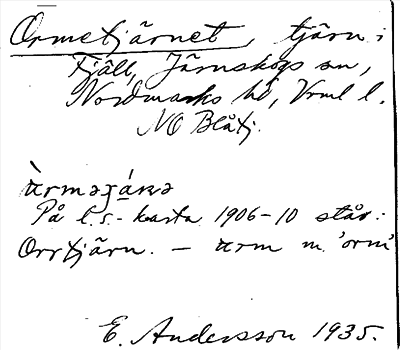 Ormetjärnet, tjärn i
Fjäll, Järnskogs sn,
Nordmarks hd, Vrml l.
NO Blåtj.
På l.s.-karta 1906-10 står:
Orrtjärn. — m. 'orm'
E. Andersson 1935.